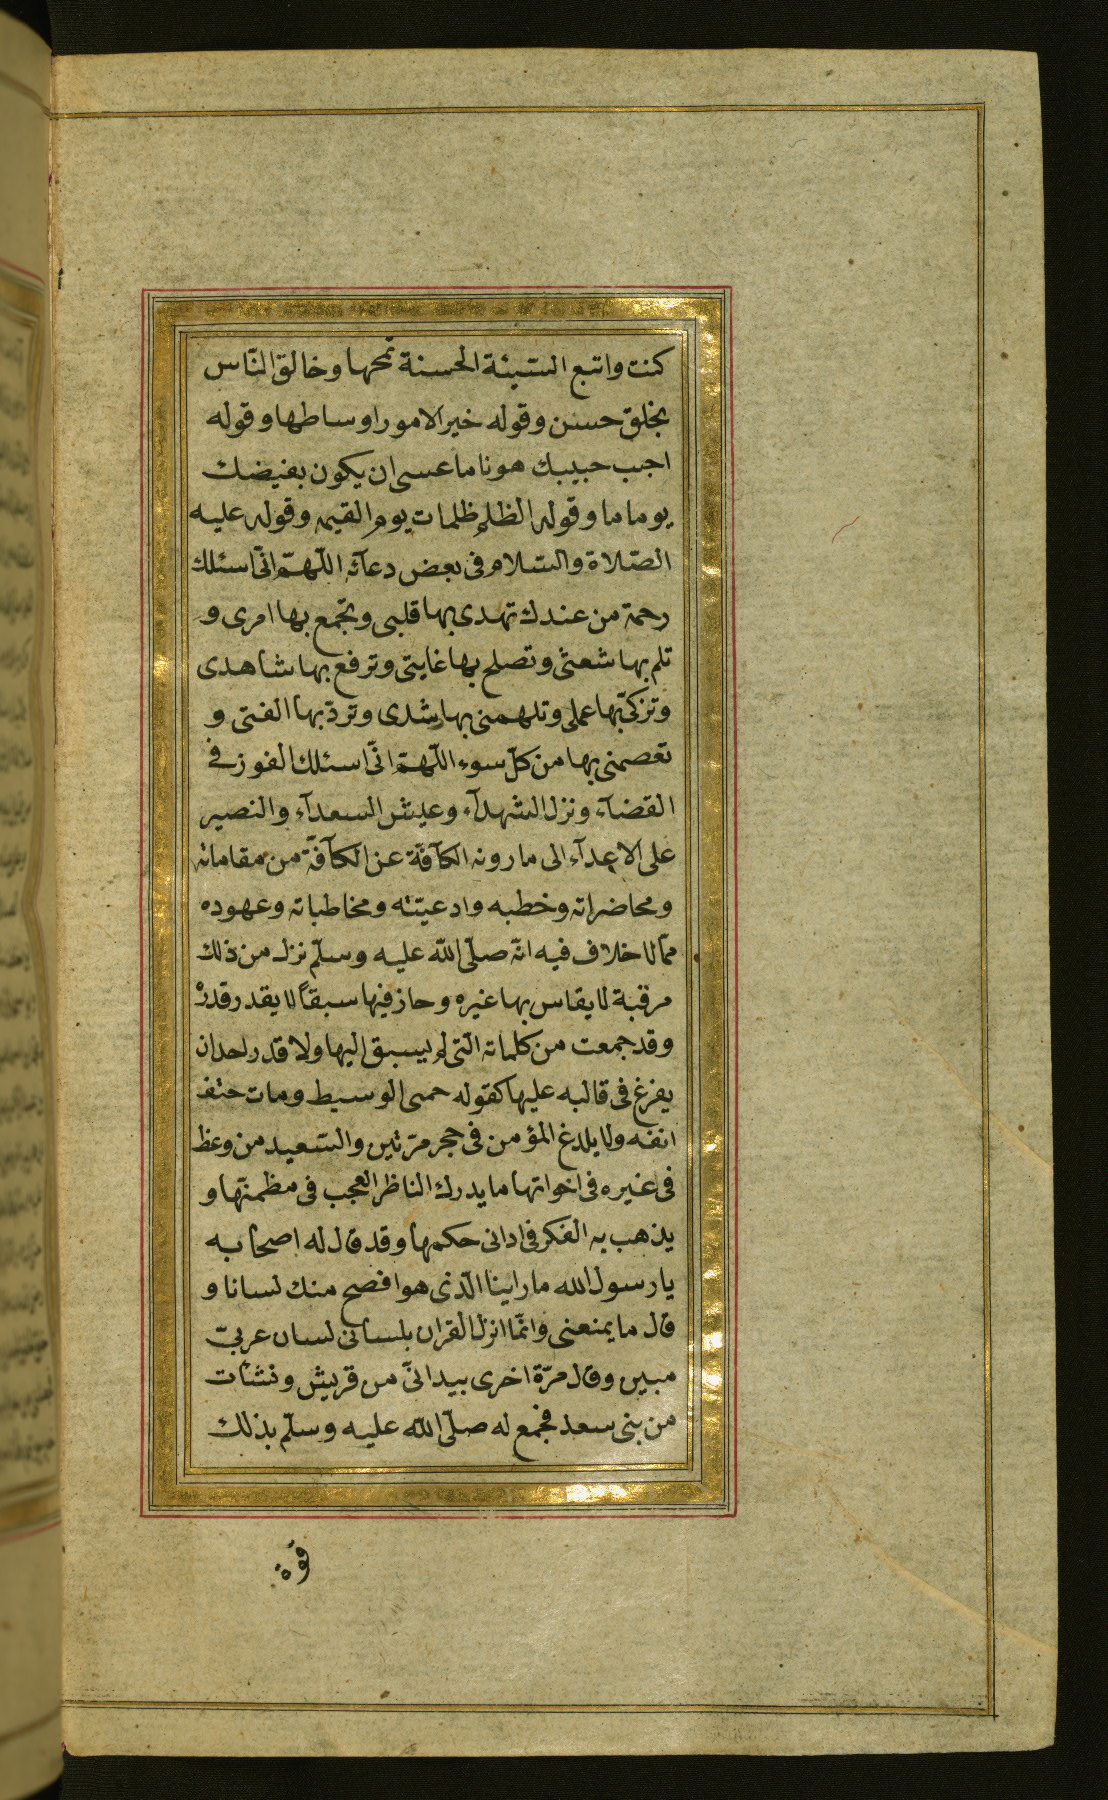 كنت واتبع السّيئة الحسنة تمحها وخالق النّاس
بخلق حسن وقوله خير الامور اوساطها وقوله
احبب حبيبك هونا ما عسى ان يكون بغيضك
يوما ما وقوله الظلم ظلمات يوم القيمه وقوله عليه
الصّلاة والسّلام فى بعض دعآئه اللّهمّ انّى اسئلك
رحمة من عندك تهدى بها قلبى وتجمع بها امرى و
تلم بها شعثى وتصلح بها غايتى وترفع بها شاهدى
وتزكّى بها عملى وتلهمنى بها رشدى وتردّ بها الفتى و
تعصمنى بها من كلّ سوء اللّهمّ انّى اسئلك الفوز فى
القضآء ونزل الشهدآء وعيش السعدآء والنصير
على الاعدآء الى ما رونه الكآفّة عن الكآفّة من مقاماته
ومحاضراته وخطبه وادعيته ومخاطباته وعهوده
ممّا لا خلاف فيه انّه صلّى اللّه عليه وسلّم نزل من ذلك
مرقبة لا يقاس بها غيره وحاز فيها سبقا لا يقدر قدره
وقد جمعت من كلماته الّتى لم يسبق اليها ولا قدر احد ان
يفرغ فى قالبه عليها كقوله حمى الوسيط ومات حتف
انفه ولا يلدغ المؤمن فى حجر مرّتين والسّعيد من وعظ
فى غيره فى اخواتها ما يدرك الناظر العجب فى مظمنتها و
يذهب به الفكر فى ادانى حكمها وقد قال له اصحابه
يا رسول الله ما راينا الّذى هو افصح منك لسانا و
قال ما يمنعنى وانّما انزل القران بلسانى لسان عربىّ
مبين وقال مرّة اخرى بيد انّى من قريش ونشات
من بنى سعد فجمع له صلّى اللّه عليه وسلّم بذلك
قوّة